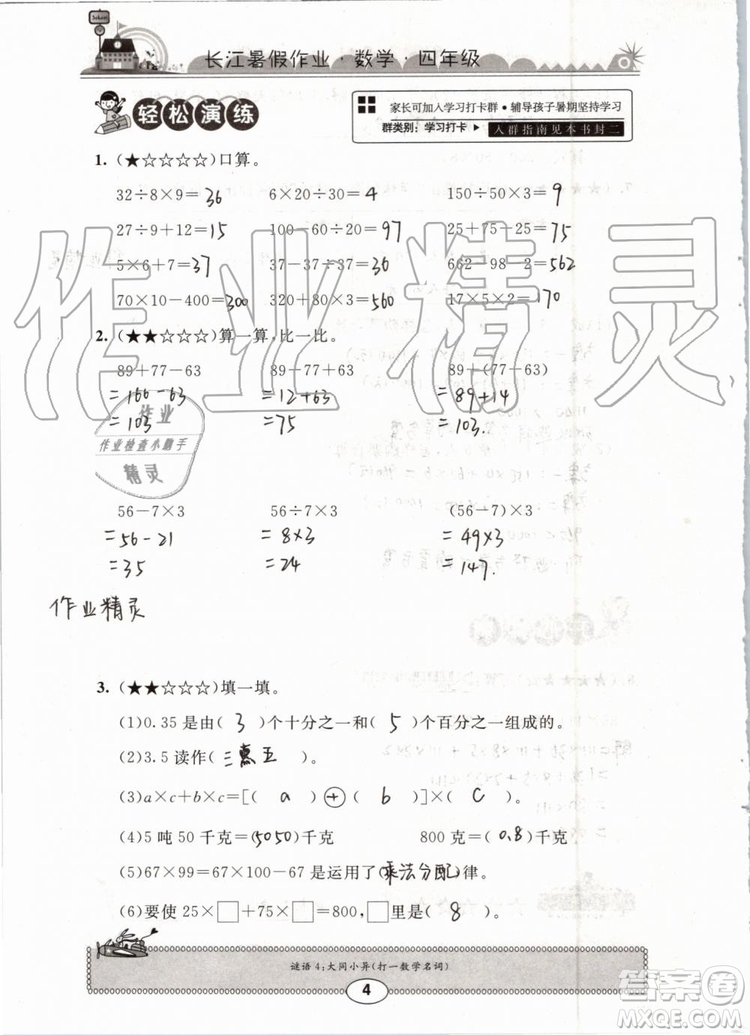 School
长江暑假作业·数学·四年级
轻松演练
家长可加入学习打卡群·辅导孩子暑期坚持学习
群类别:学习打卡 ▶ 人群指南见本书封二
1.(★☆☆☆☆)口算。
32÷8×9=36 6×20÷30=4 150÷50×3=9
27÷9+12=15 100-60÷20=97 25+75-25=75
5×6+7=37 37-37÷37=36 662-98-2=562
70×10-400=300 320+80×3=560 17×5×2=170
2.(★★☆☆☆)算一算,比一比。
89+77-63 89-77+63 89+(77-63)
=166-63 =12+63 =89+14
=103 =75 =103.
56-7×3 56÷7×3 (56-7)×3
=56-21 =8×3 =49×3
=35 =24 =147.
作业精灵
3.(★★☆☆☆)填一填。
(1)0.35是由(3)个十分之一和(5)个百分之一组成的。
(2)3.5读作(三点五)
(3)a×c+b×c=[(a)+(b)]×(c)
(4)5吨50千克=(5050)千克 800克=(0.8)千克
(5)67×99=67×100-67是运用了(乘法分配)律。
(6)要使25×□+75×□=800,□里是(8)
谜语4:大同小异(打一数学名词)
4
作业精灵
作业
作业检查小助手
精灵
答案圈
MXQE.COM